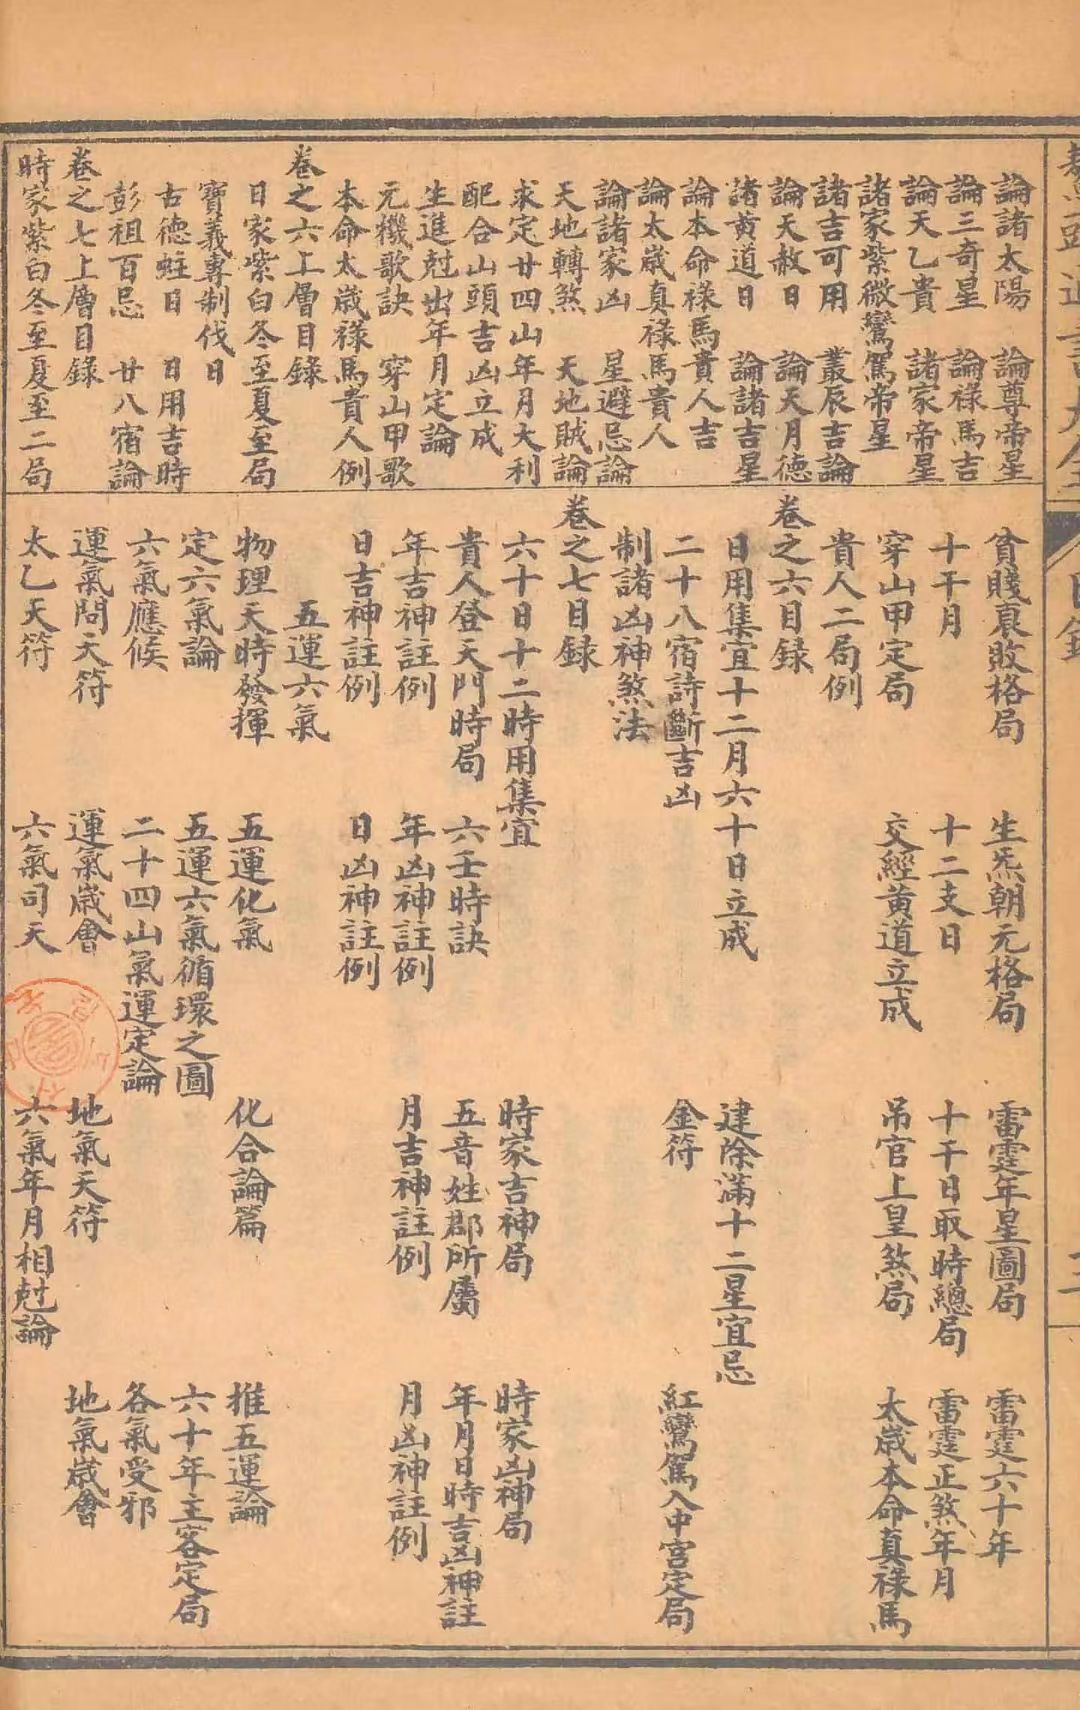 鰲頭通書大全
目錄
論諸太陽　論尊帝星
論三奇星　論祿馬吉
論天乙貴　諸家帝星
諸家紫微鸞駕帝星
諸吉可用　叢辰吉論
論天赦日　論天月德
諸黃道日　論諸吉星
論本命祿馬貴人吉
論太歲真祿馬貴人
論諸家凶　星避忌論
天地轉煞　天地賊論
求定廿四山年月大利
配合山頭吉凶立成
生進尅出年月定論
元機歌訣　穿山甲歌
本命太歲祿馬貴人例
卷之六上層目錄
日家紫白冬至夏至局
寶義專制伐日
古德蛀日　日用吉時
彭祖百忌　廿八宿論
卷之七上層目錄
時家紫白冬至夏至二局
貧賤衰敗格局　生炁朝元格局　雷霆年星圖局　雷霆六十年
十干月　十二支日　十干日取時總局　雷霆正煞年月
穿山甲定局　交經黃道立成　吊官上皇煞局　太歲本命真祿馬
貴人二局例
卷之六目録
日用集宜十二月六十日立成　建除滿十二星宜忌
二十八宿詩斷吉凶　金符　紅鸞駕入中宮定局
制諸凶神煞法
卷之七目録
六十日十二時用集宜　時家吉神局　時家凶神局
貴人登天門時局　六壬時訣　五音姓郡所屬　年月日時吉凶神註
年吉神註例　年凶神註例　月吉神註例　月凶神註例
日吉神註例　日凶神註例
五運六氣
物理天時發揮　五運化氣　化合論篇　推五運論
定六氣論　五運六氣循環之圖　六十年主客定局
六氣應候　二十四山氣運定論　各氣受邪
運氣問天符　運氣歲會　地氣天符　地氣歲會
太乙天符　六氣司天　六氣年月相尅論